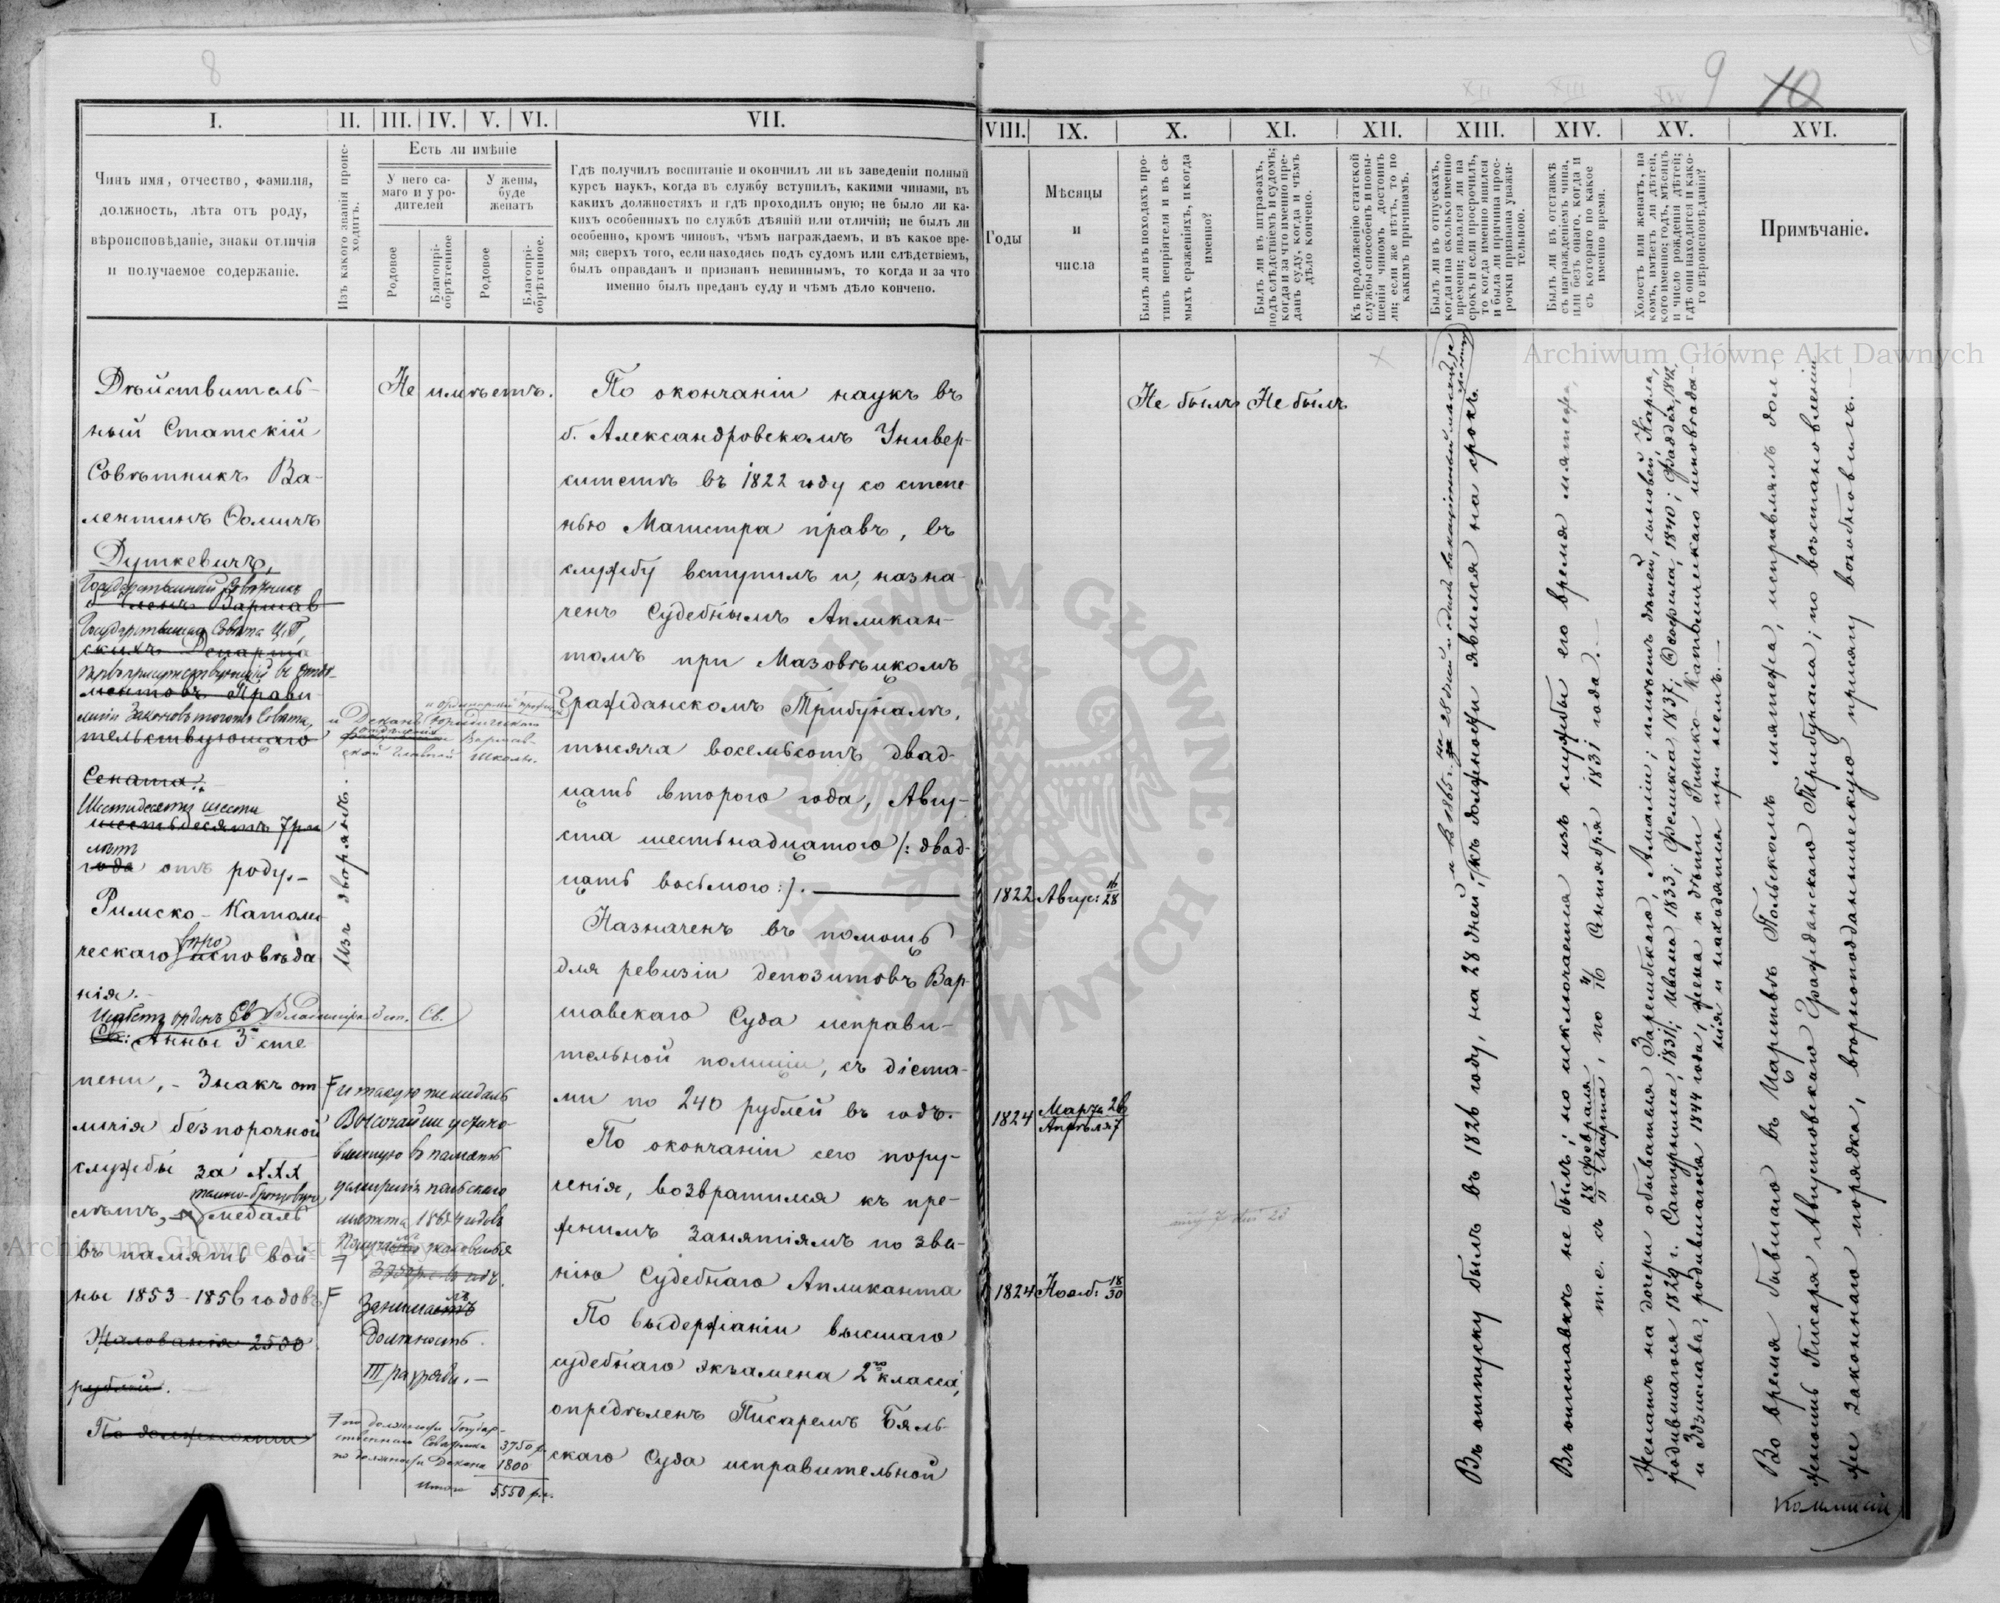 8
9
10
I.
II.
III.
IV.
V.
VI.
VII.
Чинъ имя, отчество, фамилія,
должность, лѣта отъ роду,
вѣроисповѣданіе, знаки отличія
и получаемое содержаніе.
Изъ какого званія проис-
ходитъ.
Есть ли имѣніе
У него са-
маго и у ро-
дителей
У жены,
буде
женатъ
Родовое
Благопрі-
обрѣтенное
Родовое
Благопрі-
обрѣтенное.
Гдѣ получилъ воспитаніе и окончилъ ли въ заведеніи полный
курсъ наукъ, когда въ службу вступилъ, какими чинами, въ
какихъ должностяхъ и гдѣ проходилъ оную; не было ли ка-
кихъ особенныхъ по службѣ дѣяній или отличій; не былъ ли
особенно, кромѣ чиновъ, чѣмъ награждаемъ, и въ какое вре-
мя; сверхъ того, если находясь подъ судомъ или слѣдствіемъ,
былъ оправданъ и признанъ невиннымъ, то когда и за что
именно былъ преданъ суду и чѣмъ дѣло кончено.
Дѣйствитель-
ный Статскій
Совѣтникъ Ва-
лентинъ Ѳомичъ
Дуткевичъ,
Государственный Совѣтникъ
Членъ Варшав
Государственнаго Совѣта Ц.П.,
скихъ Департа
ментовъ Прави-
ліи Законовъ тогожъ Совѣта,
тельствующаго
и Деканъ Юридическаго
ской Главной Школы.
Сената.
Шестидесяти шести
шестьдесятъ 7ми
лѣтъ
года отъ роду.-
Римско-Католи
ческаго вѣро исповѣда
нія.-
Имѣетъ орденъ Св. Владиміра 3 ст. Св.
Св: Анны 3й сте
пени, - Знакъ от
личія безпорочной
службы за XXX
темно-бронзовую
лѣтъ, и медаль
въ память вой
ны 1853-1856 годовъ,
Жалованія 2500
рублей.
и такую же медаль
Высочайше устано-
вленную въ память
усмиренія польскаго
мятежа 1864 годовъ
Занимаетъ
должность
III разряда.-
по должности Государ-
ственнаго Совѣтника 3750 р.
по должности Декана 1800
Итого 5,550 р.с.
Изъ дворянъ.
Не имѣетъ.
По окончаніи наукъ въ
б. Александровскомъ Универ-
ситетѣ въ 1822 году со степе-
нью Магистра правъ, въ
службу вступилъ и, назна-
ченъ Судебнымъ Апликан-
томъ при Мазовѣцкомъ
Гражданскомъ Трибуналѣ,
тысяча восемьсотъ двад-
цать второго года, Авгу-
ста шестьнадцатого /: двад-
цать восьмого :/.
Назначенъ въ помощь
для ревизіи депозитовъ Вар-
шавскаго Суда исправи-
тельной полиціи, съ діэта-
ми по 240 рублей въ годъ.
По окончаніи сего пору-
ченія, возвратился къ пре-
жнимъ занятіямъ по зва-
нію Судебнаго Апликанта
По выдержаніи высшаго
судебнаго экзамена 2го класса,
опредѣленъ Писаремъ Бяль-
скаго Суда исправительной
VIII.
IX.
X.
XI.
XII.
XIII.
XIV.
XV.
XVI.
Годы
Мѣсяцы
и
числа
Былъ ли въ походахъ про-
тивъ непріятеля и въ са-
мыхъ сраженіяхъ, и когда
именно?
Былъ ли въ штрафахъ,
подъ слѣдствіемъ и судомъ;
когда и за что именно пре-
данъ суду, когда и чѣмъ
дѣло кончено.
Къ продолженію статской
службы способенъ и повы-
шенія чиномъ достоинъ
ли; если же нѣтъ, то по
какимъ причинамъ.
Былъ ли въ отпускахъ,
когда и на сколько именно
времени; являлся ли на
срокъ и если просрочилъ,
то когда именно явился
и была ли причина прос-
рочки признана уважи-
тельною.
Былъ ли въ отставкѣ
съ награжденіемъ чина,
или безъ онаго, когда и
съ котораго по какое
именно время.
Холостъ или женатъ, на
комъ, имѣетъ ли дѣтей,
кого именно; годъ, мѣсяцъ
и число рожденія дѣтей;
гдѣ они находятся и како-
го вѣроисповѣданія?
Примѣчаніе.
Не былъ
Не былъ
1822 Авгус: 16/28
1824 Марта 26
Апрѣля 7
1824 Нояб: 18/30
Въ отпуску былъ въ 1826 году, на 28 дней, къ должности явился на срокъ.
Въ отставкѣ не былъ; но исключенія изъ службы его время мятежа,
т.е. съ 28 Февраля/11 Марта, по 4/16 Сентября 1831 года.-
Женатъ на дочери обывателя Зарембскаго, Амаліи; имѣетъ дѣтей, сыновей Карла,
родившагося 1829 г. Сатурнина, 1831, Ивана 1833, Феликса 1837, Софія, 1840; Фаддея 1842,
и Здзислава, родившагося 1844 года, жена и дѣти Римско-Католическаго исповѣда-
нія и находятся при немъ.-
Во время бывшаго въ Царствѣ Польскомъ мятежа, исправлялъ дол-
жность Писаря Августовскаго Гражданскаго Трибунала; по возстановленіи
же законнаго порядка, вѣрноподданническую присягу возобновилъ.-
Коммисіи
Archiwum Główne Akt Dawnych
Archiwum Główne Akt Dawnych
ARCHIWUM GŁÓWNE AKT DAWNYCH